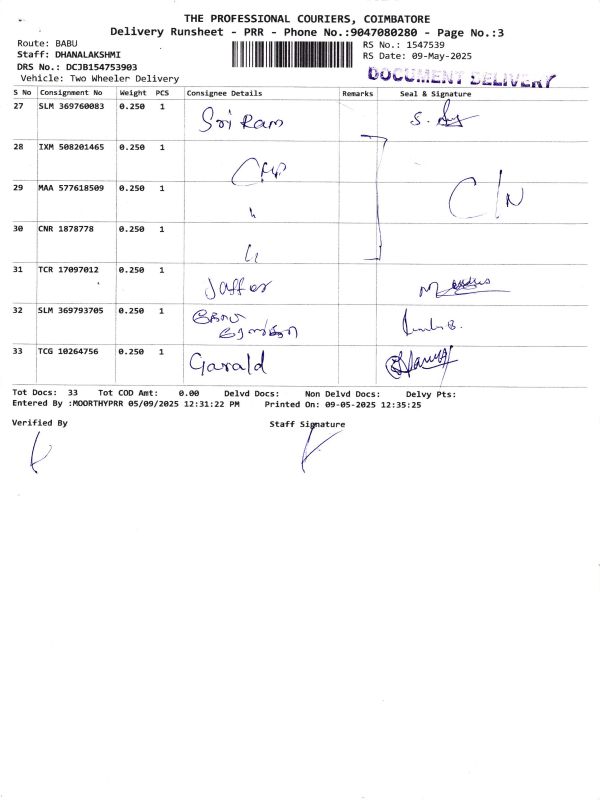 THE PROFESSIONAL COURIERS, COIMBATORE
Delivery Runsheet - PRR - Phone No.:9047080280 - Page No.:3
Route: BABU
Staff: DHANALAKSHMI
DRS No.: DCJB154753903
Vehicle: Two Wheeler Delivery
RS No.: 1547539
RS Date: 09-May-2025
DOCUMENT DELIVERY
S No Consignment No Weight PCS Consignee Details Remarks Seal & Signature
27 SLM 369760083 0.250 1 Sri Ram
28 IXM 508201465 0.250 1
29 MAA 577618509 0.250 1 "
30 CNR 1878778 0.250 1 "
C/N
31 TCR 17097012 0.250 1 Jaffer
32 SLM 369793705 0.250 1
33 TCG 10264756 0.250 1 Garald
Tot Docs: 33 Tot COD Amt: 0.00 Delvd Docs: Non Delvd Docs: Delvy Pts:
Entered By :MOORTHYPRR 05/09/2025 12:31:22 PM Printed On: 09-05-2025 12:35:25
Verified By Staff Signature